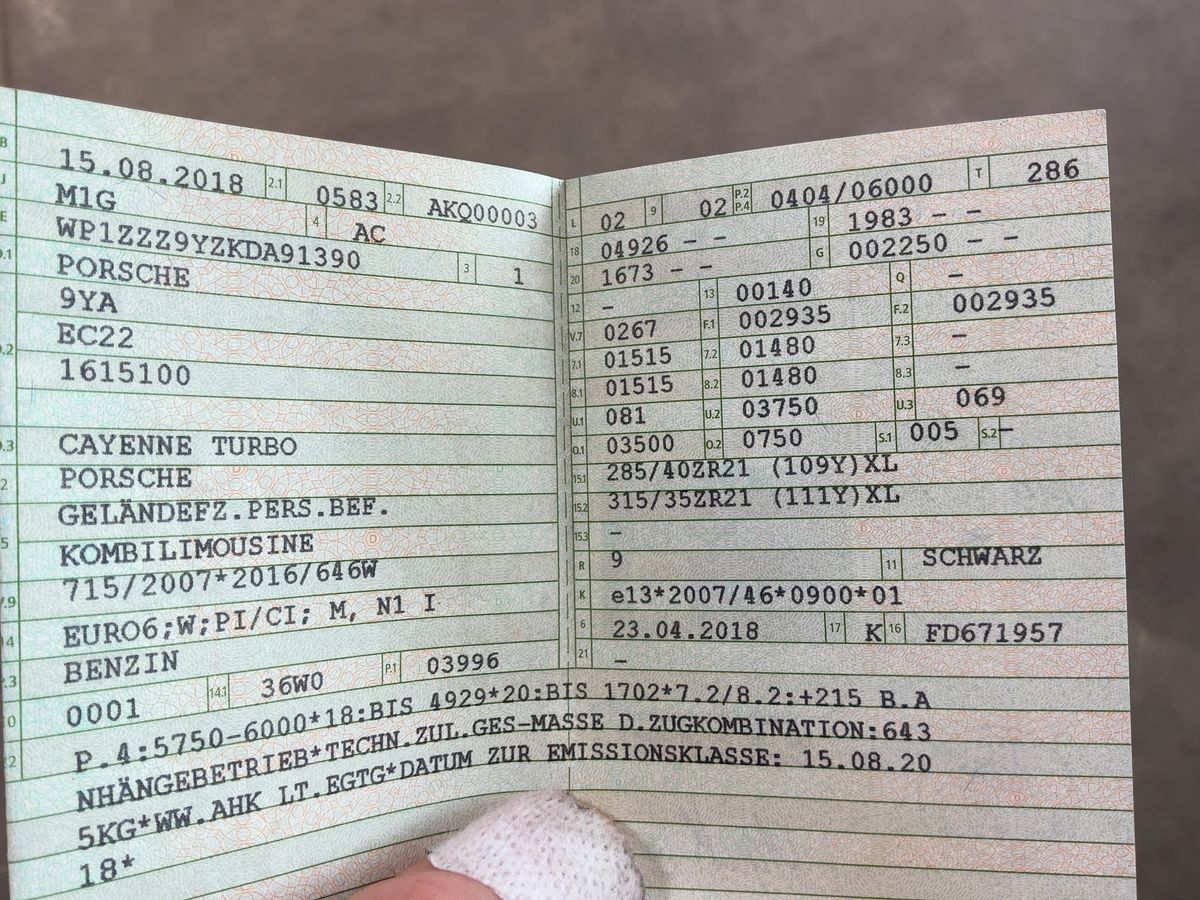 B 15.08.2018 2.1 0583 2.2 AKQ00003
J M1G 4 AC
E WP1ZZZ9YZKDA91390 3 1
D.1 PORSCHE
9YA
D.2 EC22
1615100
D.3 CAYENNE TURBO
2 PORSCHE
GELÄNDEFZ.PERS.BEF.
5 KOMBILIMOUSINE
V.9 715/2007*2016/646W
14 EURO6;W;PI/CI; M, N1 I
P.3 BENZIN
10 0001 14.1 36W0 P.1 03996
L 02 9 02 P.2 P.4 0404/06000 T 286
18 04926 - - 19 1983 - -
20 1673 - - G 002250 - -
12 - 13 00140 Q -
V.7 0267 F.1 002935 F.2 002935
7.1 01515 7.2 01480 7.3 -
8.1 01515 8.2 01480 8.3 -
U.1 081 U.2 03750 U.3 069
O.1 03500 O.2 0750 S.1 005 S.2 -
15.1 285/40ZR21 (109Y)XL
15.2 315/35ZR21 (111Y)XL
15.3 -
R 9 11 SCHWARZ
K e13*2007/46*0900*01
6 23.04.2018 17 K 16 FD671957
21 -
22 P.4:5750-6000*18:BIS 4929*20:BIS 1702*7.2/8.2:+215 B.A
NHÄNGEBETRIEB*TECHN.ZUL.GES-MASSE D.ZUGKOMBINATION:643
5KG*WW.AHK LT.EGTG*DATUM ZUR EMISSIONSKLASSE: 15.08.20
18*